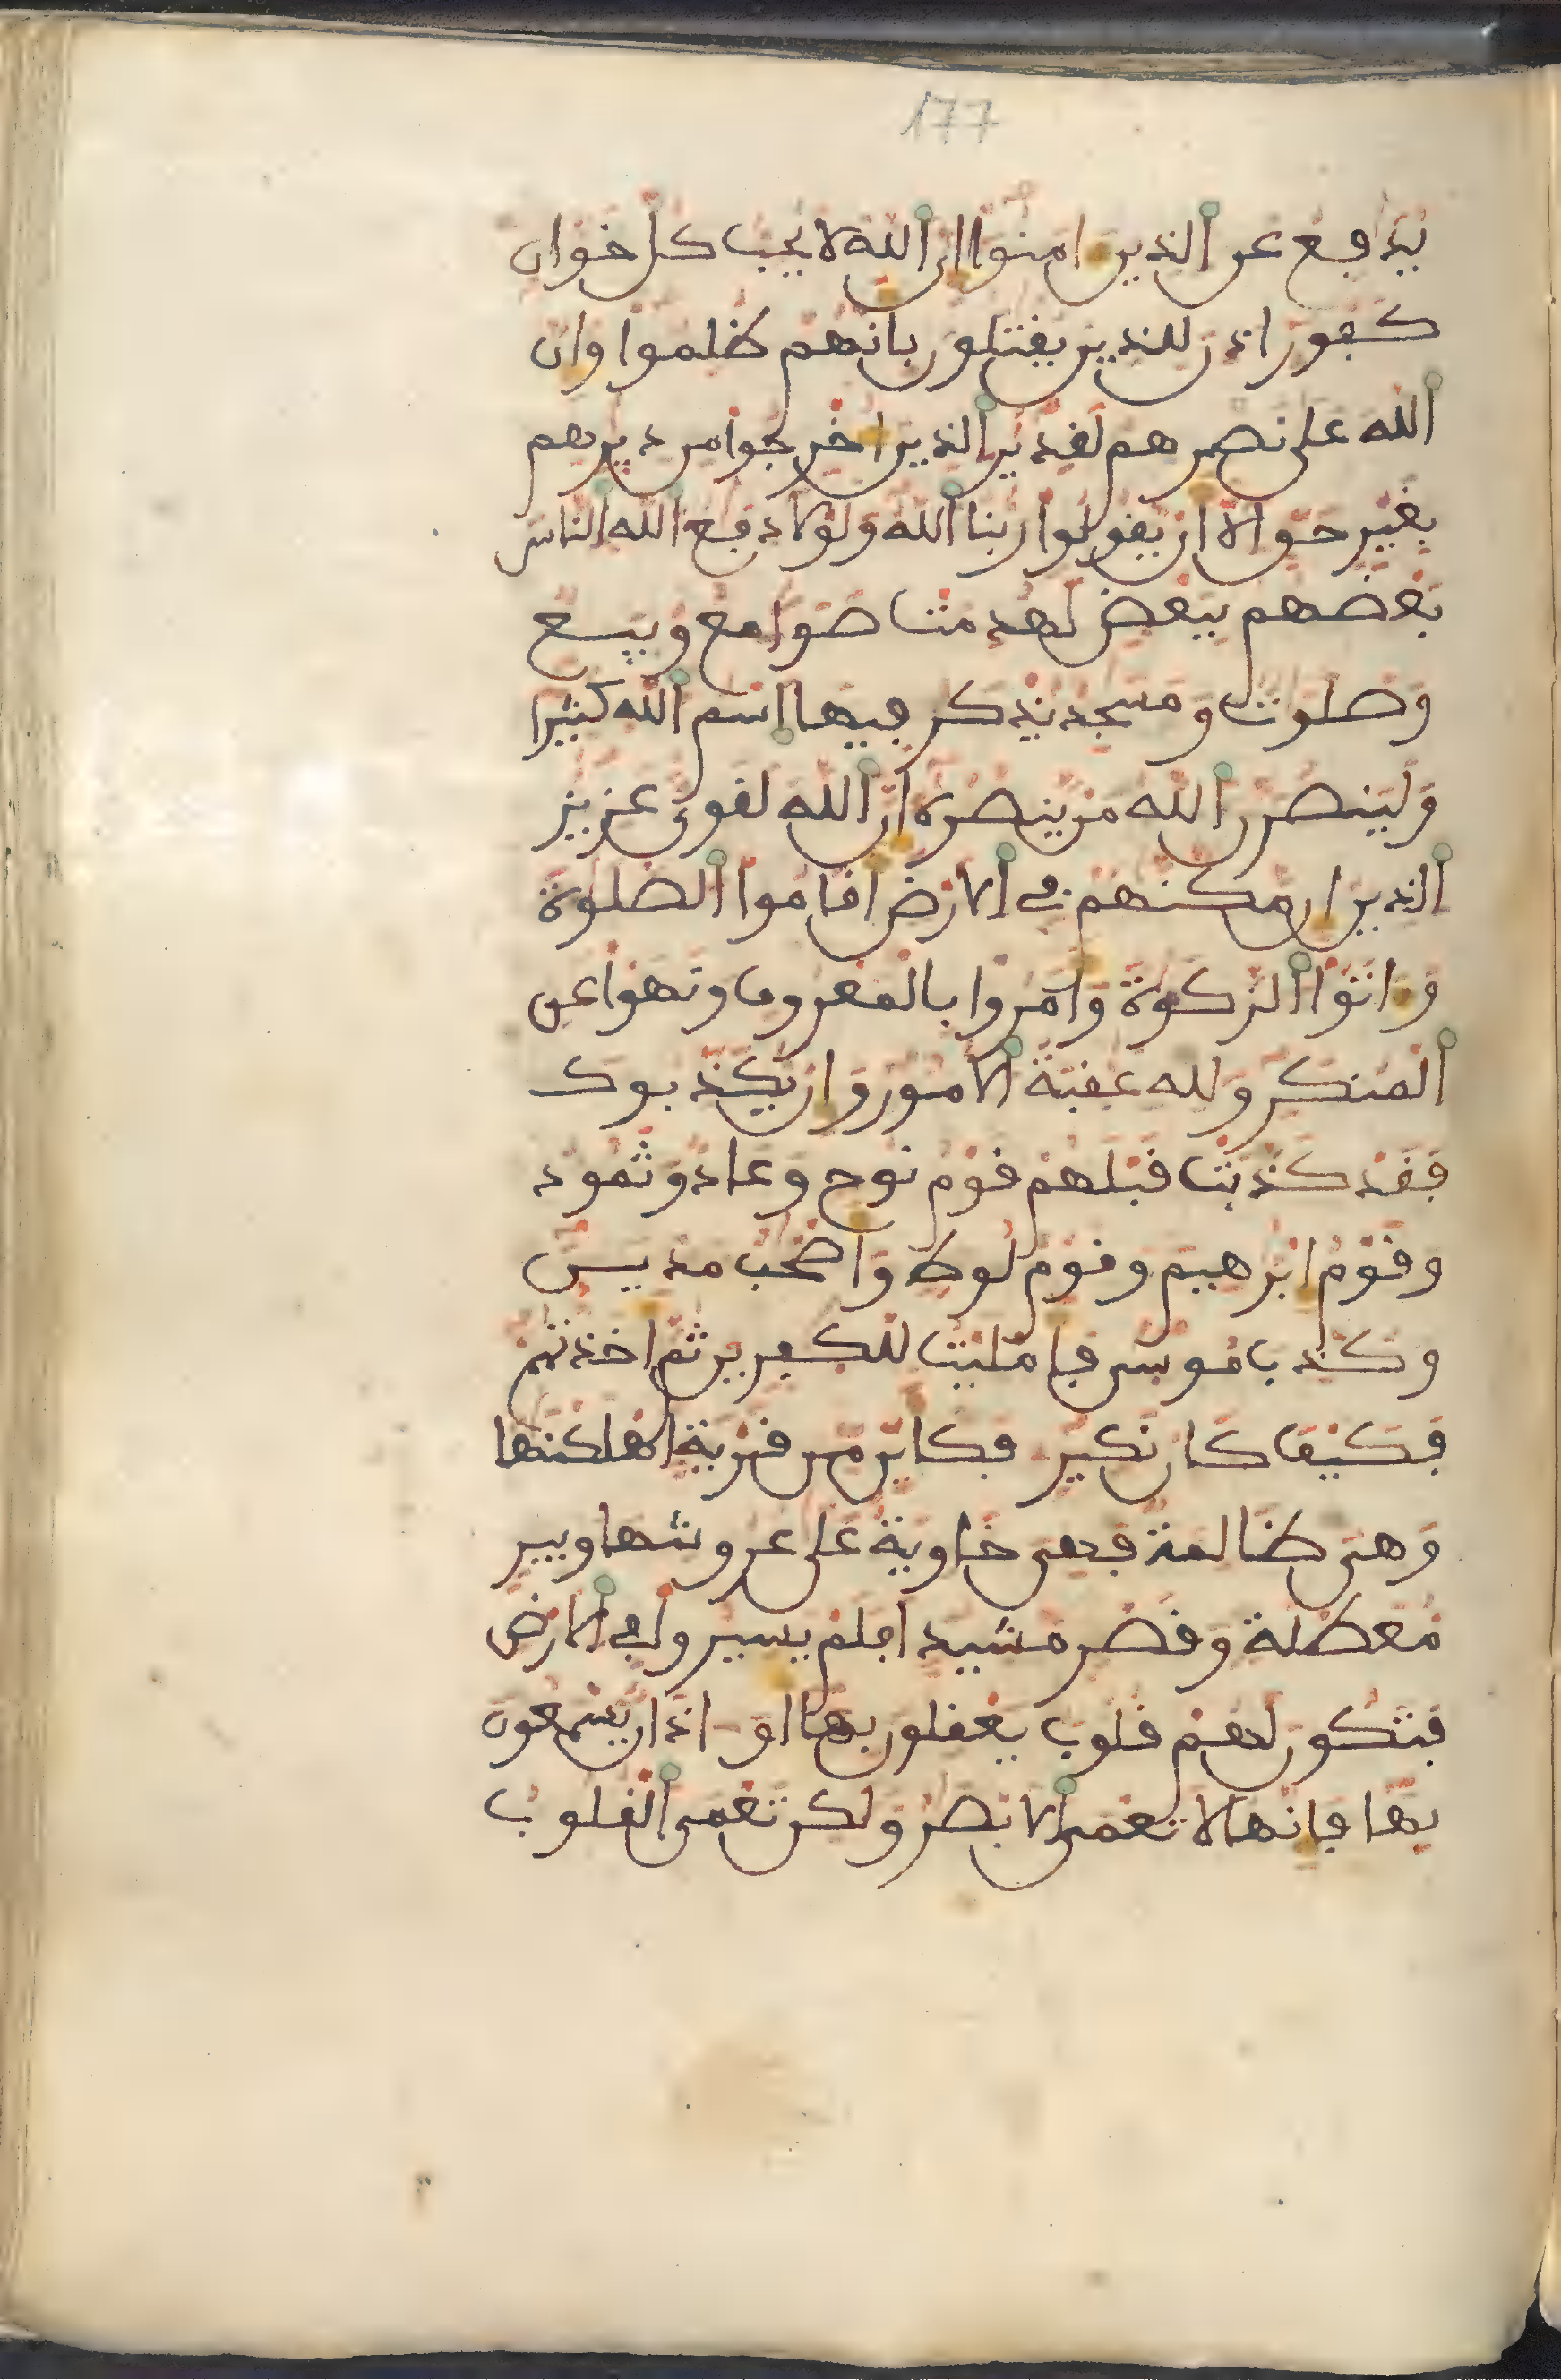 177
يدفع عن الذين ءامنوا ان الله لا يحب كل خوان
كفور اذن للذين يقتلون بانهم ظلموا وان
الله على نصرهم لقدير الذين اخرجوا من ديرهم
بغير حق الا ان يقولوا ربنا الله ولولا دفع الله الناس
بعضهم ببعض لهدمت صوامع وبيع
وصلوت ومسجد يذكر فيها اسم الله كثيرا
ولينصرن الله من ينصره ان الله لقوى عزيز
الذين ان مكنهم في الارض اقاموا الصلوة
وءاتوا الزكوة وامروا بالمعروف ونهوا عن
المنكر ولله عقبة الامور وان يكذبوك
فقد كذبت قبلهم قوم نوح وعاد وثمود
وقوم ابرهيم وقوم لوط واصحب مدين
وكذب موسى فامليت للكفرين ثم اخذتهم
فكيف كان نكير فكاين من قرية اهلكنها
وهى ظالمة فهى خاوية على عروشها وبير
معطلة وقصر مشيد افلم يسيروا في الارض
فتكون لهم قلوب يعقلون بها او اذان يسمعون
بها فانها لا تعمى الابصر ولكن تعمى القلوب